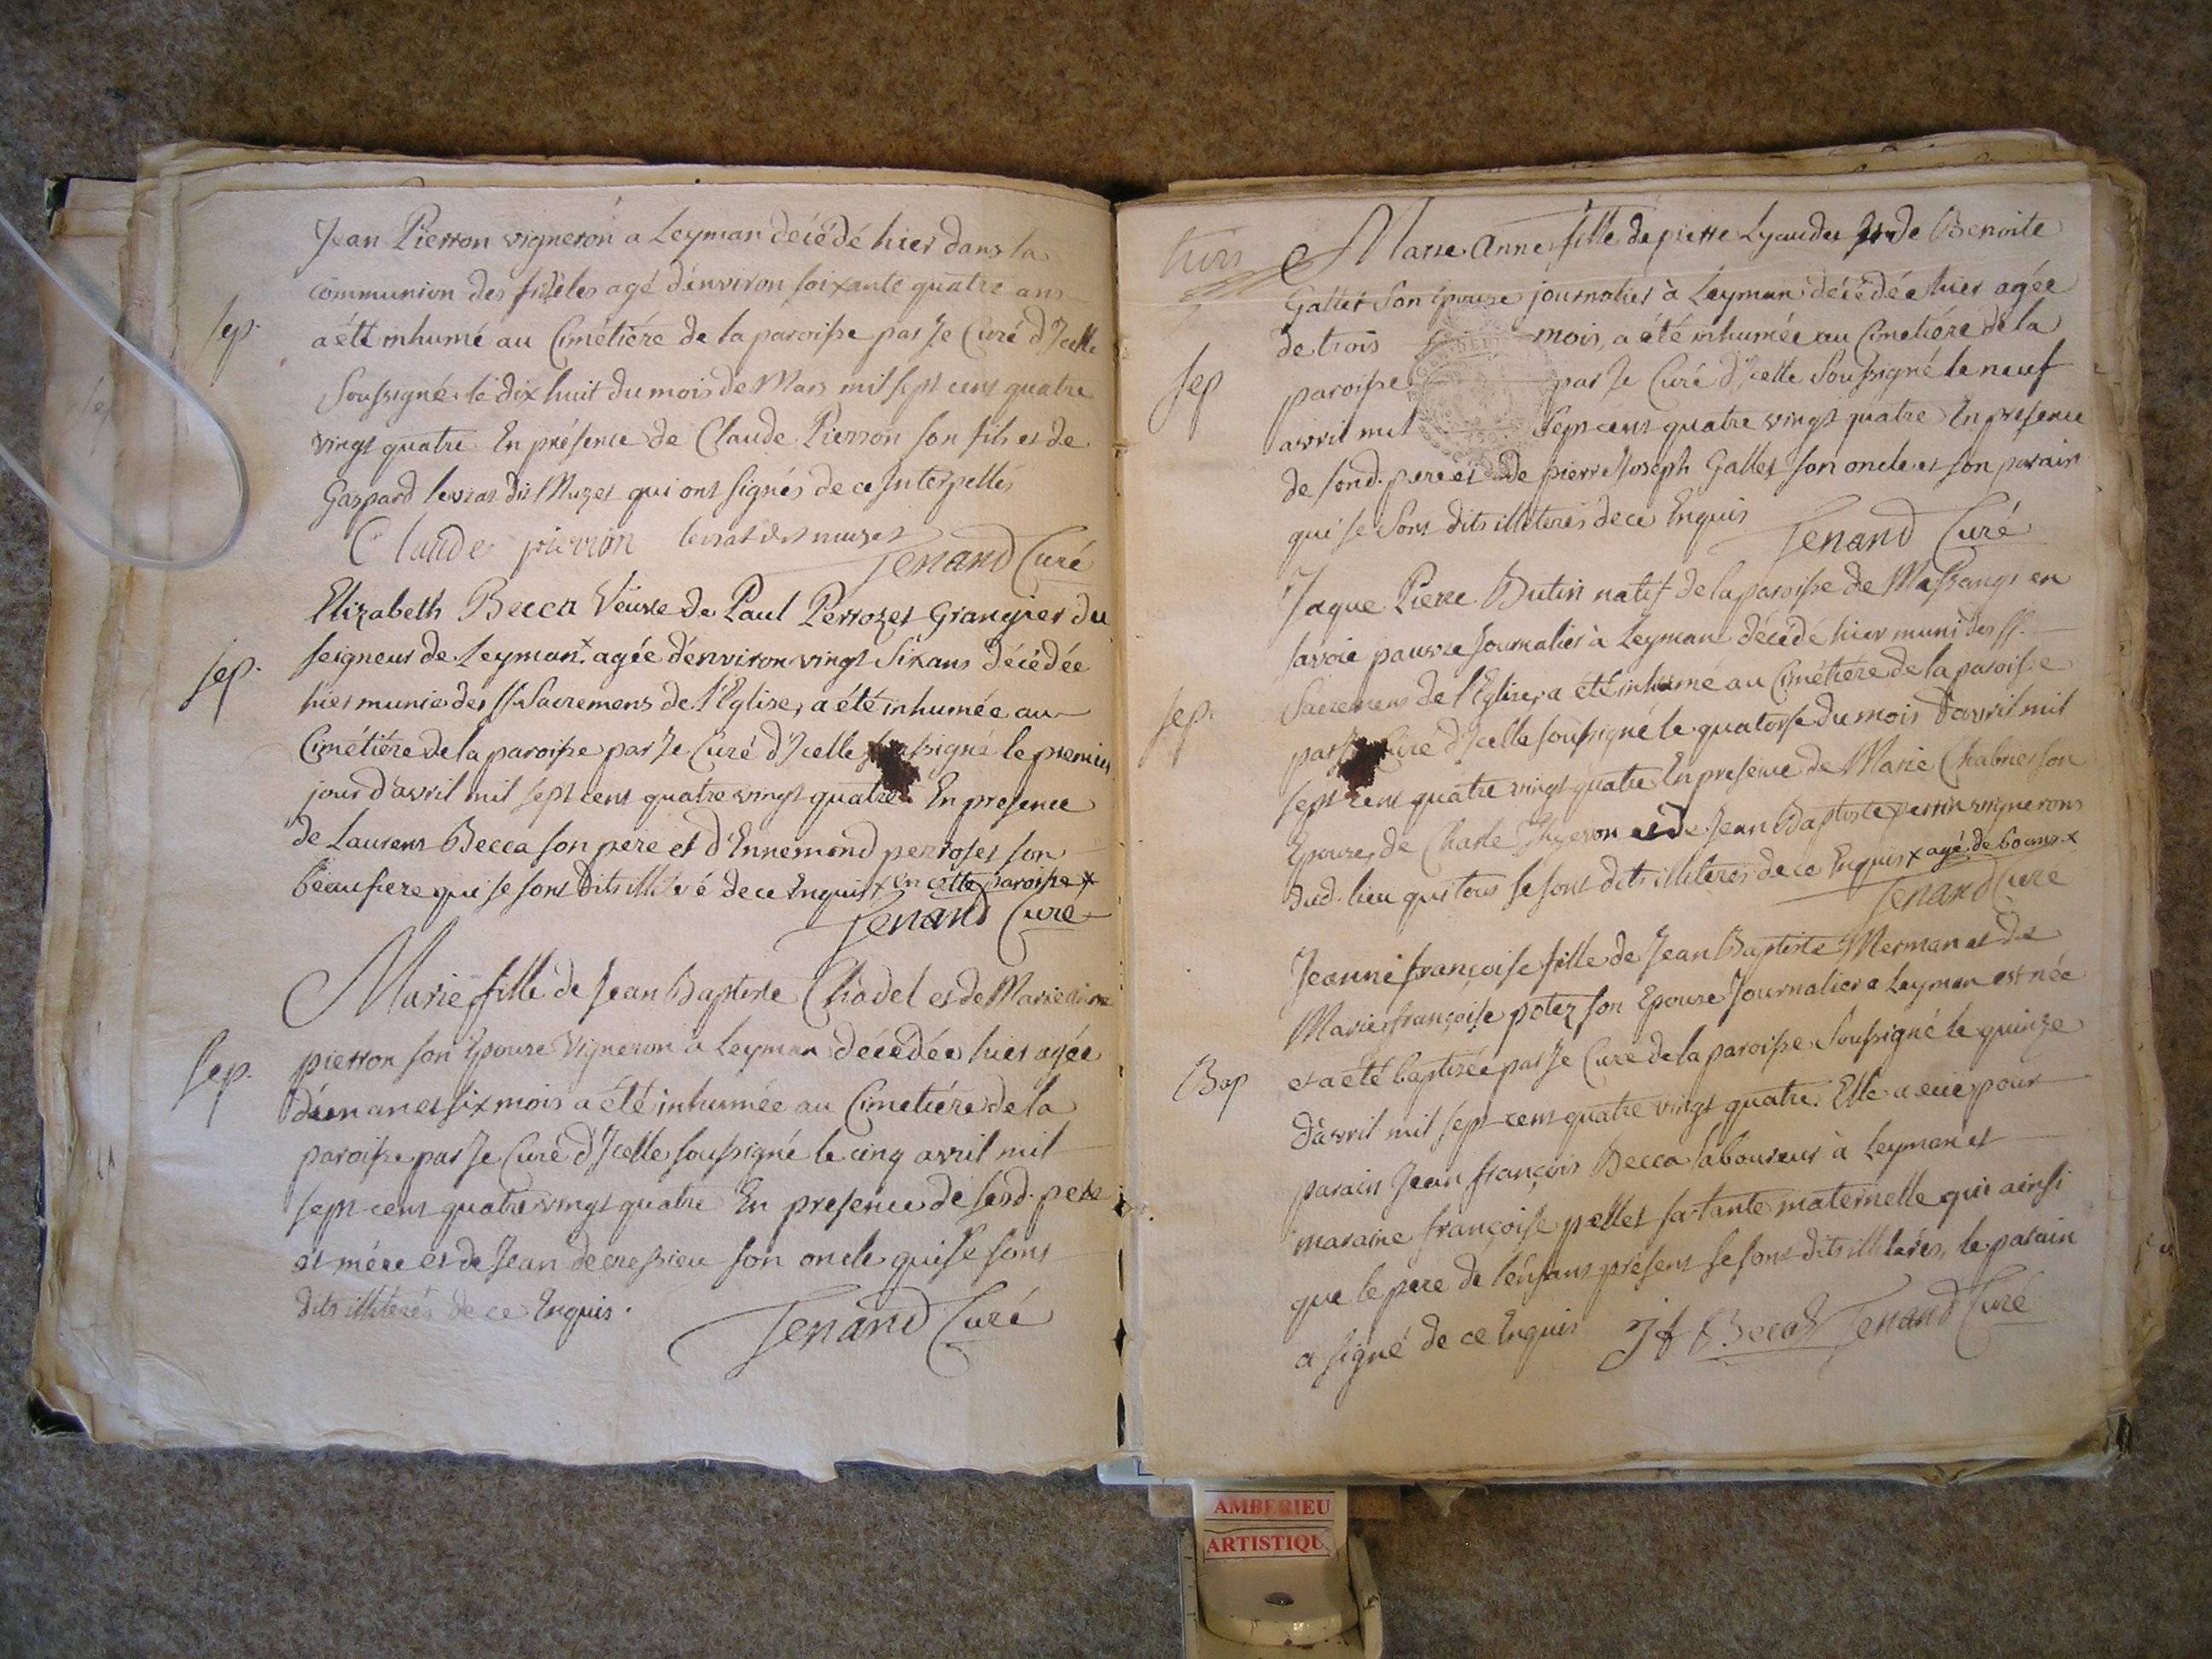 Jean Pierron vigneron a Leyman décédé hier dans la
communion des fidèles agé d'environ soixante quatre ans
sep. a été inhumé au Cimétiére de la paroisse par Je Curé d'Icelle
Soussigné le dix huit du mois de Mars mil sept cent quatre
vingt quatre En présence de Claude Pierron son fils et de
Gaspard levrat dit Muzet qui ont signés de ce Interpellés
Claude pierron levrat dit muzet
Tenand Curé
Elizabeth Becca Veuve de Paul Perrozet Grangier du
sep. seigneur de Leyman x agée d'environ vingt Six ans décédée
hier munie des SS. Sacremens de l'Eglise, a été inhumée au
Cimétiére de la paroisse par Je Curé d'Icelle soussigné le premier
jour d'avril mil sept cent quatre vingt quatre. En presence
de Laurent Becca son pere et d'Ennemond perrozet son
beaufrere qui se sont dits de ce Enquis x en cette paroisse x
Tenand Curé
Marie fille de Jean Baptiste Chadel et de Marie
sep. pierron son Epouse Vigneron a Leyman décédée hier agée
d'un an et six mois a été inhumée au Cimetiére de la
paroisse par Je Curé d'Icelle soussigné le cinq avril mil
sept cent quatre vingt quatre En presence de send. pere
et mére et de Jean decressieu son oncle qui se sont
dits illiterés de ce Enquis.
Tenand Curé
trois
Marie Anne fille de pierre Lyaudet et de Benoite
Gallet Son Epouse journalier à Leyman décédée hier agée
de trois mois, a été inhumée au Cimetiére de la
sep paroisse par Je Curé d'Icelle Soussigné le neuf
avril mil Sept cent quatre vingt quatre En presence
de sond. pere et de pierre Joseph Gallet son oncle et son parain
qui se Sont dits illiterés de ce Enquis
Tenand Curé
Jaque Pierre Butin natif de la paroisse de en
savoie pauvre Journalier à Leyman décédé hier muni des SS.
sep. Sacremens de l'Eglise, a été inhumé au Cimétiére de la paroisse
par Je Curé d'Icelle soussigné le quatorse du mois d'avril mil
sept cent quatre vingt quatre En presence de Marie Chabrier son
Epouse, de Charle et de Jean Baptiste perrin vignerons
dud. lieu qui tous se sont dits illiterés de ce Enquis x agé de 60 ans x
Tenand Curé
Jeanne françoise fille de Jean Baptiste Merman et de
Marie françoise potez son Epouse Journalier a Leyman est née
Bap et a été baptisée par Je Curé de la paroisse Soussigné le quinze
d'avril mil sept cent quatre vingt quatre. Elle a eue pour
parain Jean françois Becca laboureur à Leyman et
maraine françoise pellet sa tante maternelle qui ainsi
que le pere de l'enfant présent se sont dits illiterés, le parain
a signé de ce Enquis J f Becca Tenand Curé
AMBERIEU
ARTISTIQU